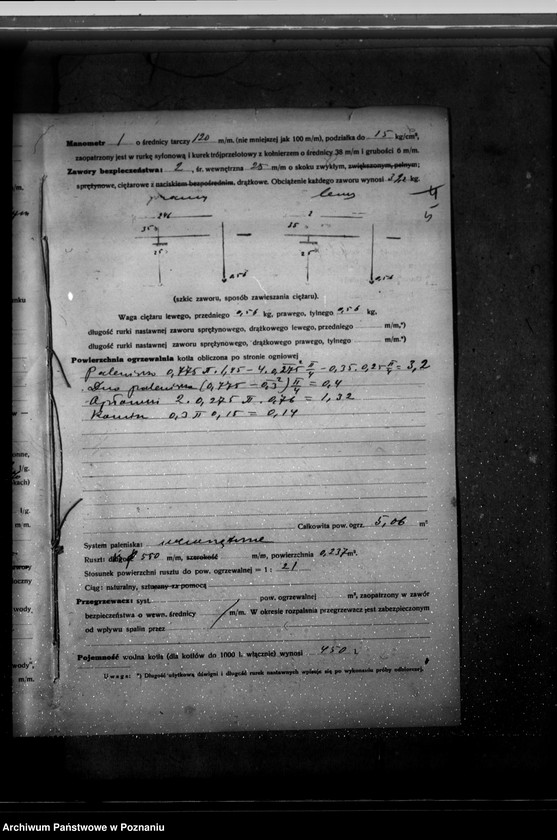 Manometr 1 o średnicy tarczy 120 m/m. (nie mniejszej jak 100 m/m), podziałka do 15 kg/cm²,
zaopatrzony jest w rurkę syfonową i kurek trójprzelotowy z kołnierzem o średnicy 38 m/m i grubości 6 m/m.
Zawory bezpieczeństwa: 2, śr. wewnętrzna 25 m/m o skoku zwykłym, zwiększonym, pełnym;
sprężynowe, ciężarowe z naciskiem bezpośrednim, drążkowe. Obciążenie każdego zaworu wynosi kg.
prawy lewy
35 35
25 25
0,56 0,56
(szkic zaworu, sposób zawieszania ciężaru).
Waga ciężaru lewego, przedniego 0,56 kg, prawego, tylnego 0,56 kg,
długość rurki nastawnej zaworu sprężynowego, drążkowego lewego, przedniego m/m.*)
długość rurki nastawnej zaworu sprężynowego, drążkowego prawego, tylnego m/m.*)
Powierzchnia ogrzewalna kotła obliczona po stronie ogniowej
Palenisko 0,775 π . 1,85 − 4 . 0,275² π/4 − 0,35 . 0,25 π/4 = 3,2
Dno paleniska (0,775 − 0,3²) π/4 = 0,4
Opłomki 2 . 0,275 π . 0,76 = 1,32
Komin 0,3 π 0,15 = 0,14
Całkowita pow. ogrz. 5,06 m²
System paleniska: wewnętrzne
Ruszt: 550 m/m, szerokość m/m, powierzchnia 0,237 m².
Stosunek powierzchni rusztu do pow. ogrzewalnej = 1 : 21
Ciąg: naturalny, sztuczny za pomocą
Przegrzewacz: syst. pow. ogrzewalnej m², zaopatrzony w zawór
bezpieczeństwa o wewn. średnicy m/m. W okresie rozpalania przegrzewacz jest zabezpieczonym
od wpływu spalin przez
Pojemność wodna kotła (dla kotłów do 1000 l. włącznie) wynosi 450 l.
Uwaga: *) Długość użytkową dźwigni i długość rurek nastawnych wpisuje się po wykonaniu próby odbiorczej.
Archiwum Państwowe w Poznaniu